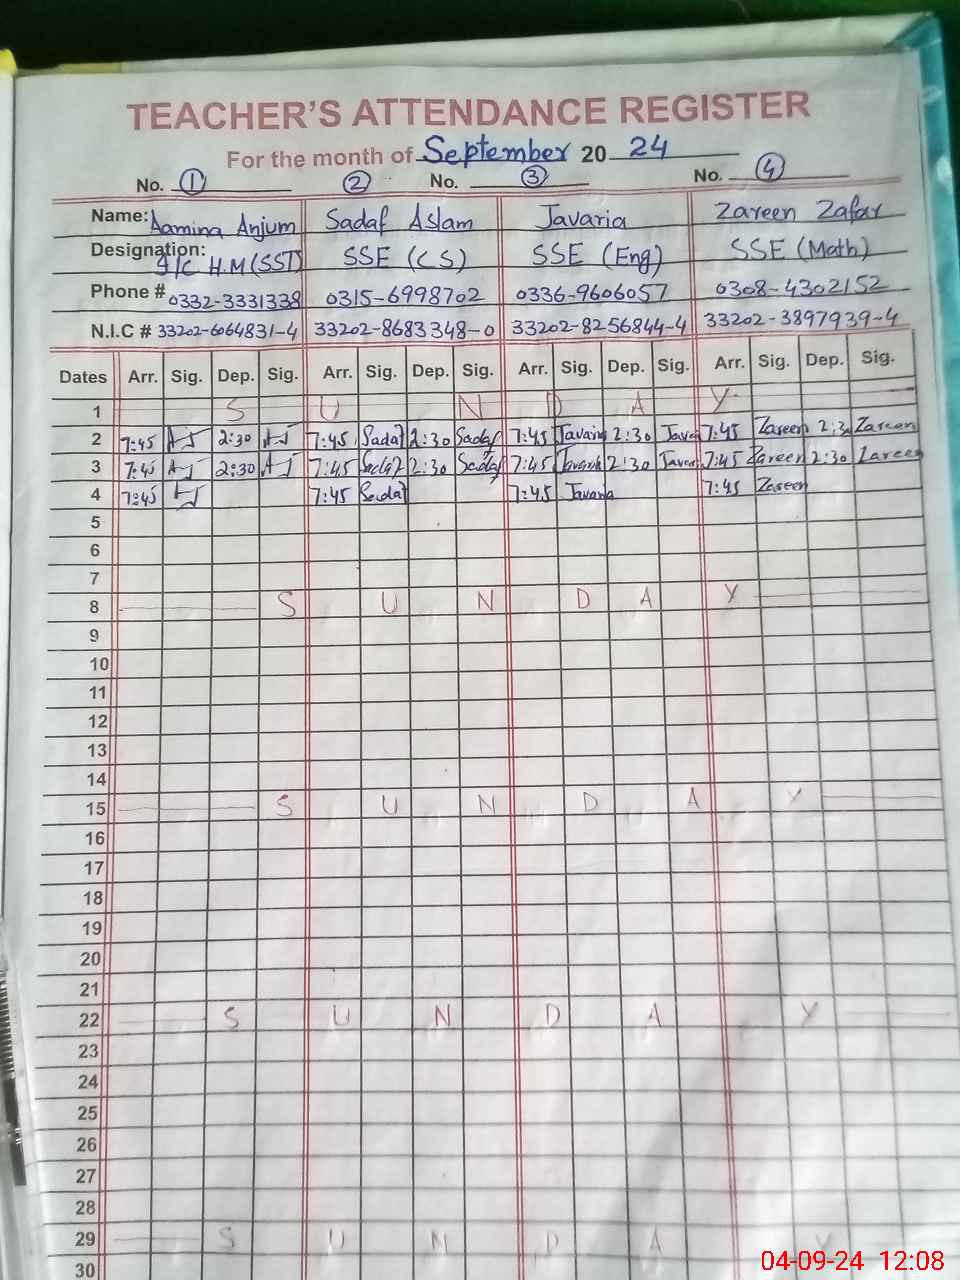 TEACHER'S ATTENDANCE REGISTER
For the month of September 20 24
No. 1 2 No. 3 No. 4
Name: Aamina Anjum Sadaf Aslam Javaria Zareen Zafar
Designation: I/C H.M (SST) SSE (CS) SSE (Eng) SSE (Math)
Phone # 0332-3331338 0315-6998702 0336-9606057 0308-4302152
N.I.C # 33202-6064831-4 33202-8683348-0 33202-8256844-4 33202-3897939-4
Dates Arr. Sig. Dep. Sig. Arr. Sig. Dep. Sig. Arr. Sig. Dep. Sig. Arr. Sig. Dep. Sig.
1 S U N D A Y
2 7:45 AJ 2:30 AJ 7:45 Sadaf 2:30 Sadaf 7:45 Javaria 2:30 Javer 7:45 Zareen 2:3 Zareen
3 7:45 AJ 2:30 AJ 7:45 Sadaf 2:30 Sadaf 7:45 Javaria 2:30 Javer 7:45 Zareen 2:30 Zareen
4 7:45 AJ 7:45 Sadaf 7:45 Javaria 7:45 Zareen
5
6
7
8 S U N D A Y
9
10
11
12
13
14
15 S U N D A Y
16
17
18
19
20
21
22 S U N D A Y
23
24
25
26
27
28
29 S U N D A Y
30
04-09-24 12:08